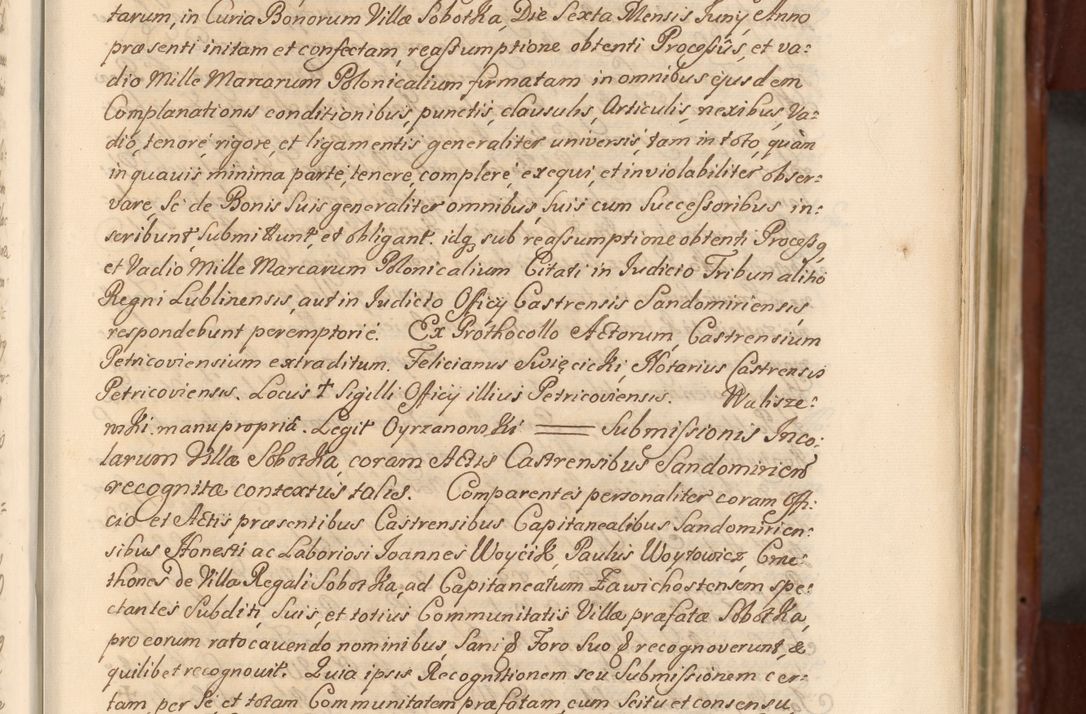 tarum, in Curia Bonorum Villæ Sobotka, Die Sexta Mensis Junÿ Anno
præsenti initam et confectam, reassumptione obtenti Processûs, et va:
dio Mille Marcarum Polonicalium firmatam in omnibus ejusdem
Complanationis conditionibus, punctis, clausulis, Articulis, nexibus, Va:
dio, tenore, rigore, et ligamentis generaliter universis, tam in toto, quàm
in quavis minima parte, tenere, complere, exequi, et inviolabiliter obser:
vare, Se de Bonis Suis generaliter omnibus, Suis cum Successoribus in:
scribunt, Submittunt, et obligant. idq sub reassumptione obtenti Process9
et Vadio Mille Marcarum Polonicalium Citati in Judicio Tribunalitio
Regni Lublinensis, aut in Judicio Officÿ Castrensis Sandomiriensis
respondebunt peremptoriè. Ex Prothocollo Actorum Castrensium
Petricoviensium extraditum. Felicianus Swięcicki, Notarius Castrensis
Petricoviensis. Locus † Sigilli Officÿ illius Petricoviensis. Walisze:
wski. manu propriâ. Legit Oyrzanowski ═══ Submissionis Inco:
larum Villæ Sobotka, coram Actis Castrensibus Sandomirien
recognitæ contextus talis. Comparentes personaliter coram Offi:
cio et Actis præsentibus Castrensibus Capitanealibus Sandomirien:
sibus Honesti ac Laboriosi Joannes Woyćik, Paulus Woytowicz, Cme:
thones de Villa Regali Sobotka, ad Capitaneatum Zawichostensem spe:
ctantes Subditi, Suis, et totius Communitatis Villæ præfatæ Sobotka,
pro eorum rato cavendo nominibus, Sani & Foro Suo & recognoverunt, &
quilibet recognovit. Quia ipsis Recognitionem seu Submissionem cer:
tam, per Se et totam Communitatem præfatam, cum Scitu et consensu,